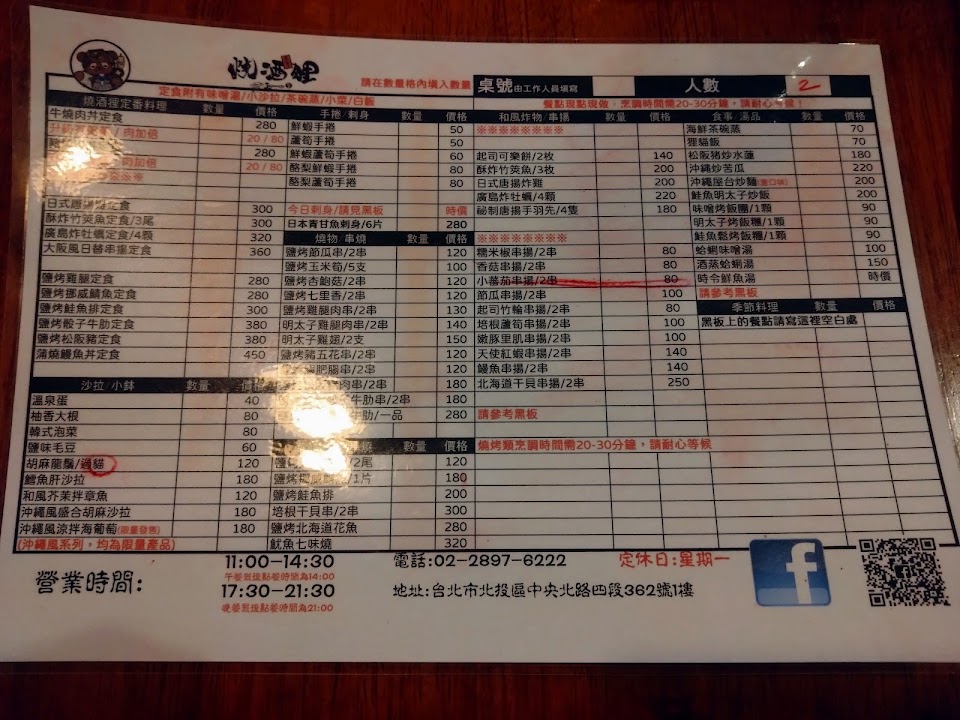 燒酒狸
請在數量格內填入數量
桌號 由工作人員填寫
人數 2
定食附有味噌湯/小沙拉/茶碗蒸/小菜/白飯
餐點現點現做，烹調時間需20-30分鐘，請耐心等候！
燒酒狸定番料理 數量 價格
牛燒肉丼定食 280
肉加倍 20 / 80
280
肉加倍 20 / 80
日式唐揚 定食 300
酥炸竹莢魚定食/3尾 300
廣島炸牡蠣定食/4顆 320
大阪風日替串揚定食 360
鹽烤雞腿定食 280
鹽烤挪威鯖魚定食 280
鹽烤鮭魚排定食 300
鹽烤骰子牛肋定食 380
鹽烤松阪豬定食 380
蒲燒鰻魚丼定食 450
沙拉/小鉢 數量 價格
溫泉蛋 40
柚香大根 80
韓式泡菜 80
鹽味毛豆 60
胡麻龍鬚/過貓 120
鱈魚肝沙拉 180
和風芥茉拌章魚 120
沖繩風盛合胡麻沙拉 180
沖繩風涼拌海葡萄(限量發售) 180
(沖繩風系列，均為限量產品)
手捲/刺身 數量 價格
鮮蝦手捲 50
蘆筍手捲 50
鮮蝦蘆筍手捲 60
酪梨鮮蝦手捲 80
酪梨蘆筍手捲 80
今日刺身/請見黑板 時價
日本青甘魚刺身/6片 280
燒物/串燒 數量 價格
鹽烤節瓜串/2串 80
鹽烤玉米筍/5支 100
鹽烤杏鮑菇/2串 120
鹽烤七里香/2串 120
鹽烤雞腿肉串/2串 130
明太子雞腿肉串/2串 140
明太子雞翅/2支 150
鹽烤豬五花串/2串 120
肥腸串/2串 120
肉串/2串 180
牛肋串/2串 180
牛肋/一品 280
數量 價格
/2尾 120
鹽烤挪威 /1片 180
鹽烤鮭魚排 200
培根干貝串/2串 300
鹽烤北海道花魚 280
魷魚七味燒 320
和風炸物/串揚 數量 價格
※※※※※※※※
起司可樂餅/2枚 140
酥炸竹莢魚/3枚 200
日式唐揚炸雞 200
廣島炸牡蠣/4顆 220
祕制唐揚手羽先/4隻 180
※※※※※※※※
糯米椒串揚/2串 80
香菇串揚/2串 80
小蕃茄串揚/2串 80
節瓜串揚/2串 100
起司竹輪串揚/2串 80
培根蘆筍串揚/2串 100
嫩豚里肌串揚/2串 100
天使紅蝦串揚/2串 140
鰻魚串揚/2串 140
北海道干貝串揚/2串 250
請參考黑板
燒烤類烹調時間需20-30分鐘，請耐心等候
食事/湯品 數量 價格
海鮮茶碗蒸 70
狸貓飯 70
松阪豬炒水蓮 180
沖繩炒苦瓜 220
沖繩屋台炒麵(重口味) 200
鮭魚明太子炒飯 200
味噌烤飯糰/1顆 90
明太子烤飯糰/1顆 90
鮭魚鬆烤飯糰/1顆 90
蛤蜊味噌湯 100
酒蒸蛤蜊湯 150
時令鮮魚湯 時價
請參考黑板
季節料理 數量 價格
黑板上的餐點請寫這裡空白處
營業時間:
11:00-14:30
午餐最後點餐時間為14:00
17:30-21:30
晚餐最後點餐時間為21:00
電話:02-2897-6222
定休日:星期一
地址:台北市北投區中央北路四段362號1樓